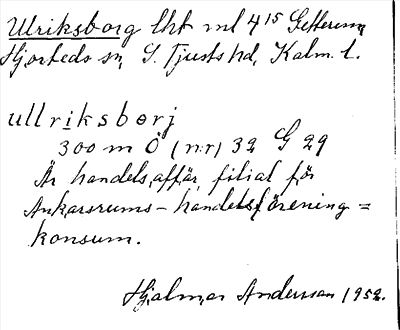 Ulriksborg lht nl 4¹⁵ Getterum
Hjorteds sn, S. Tjusts hd, Kalm. l.
ullriksborj
300 m Ö (nr) 32 G 29
Är handelsaffär, filial för
Ankarsrums-handelsförening=
konsum.
Hjalmar Andersson 1952.